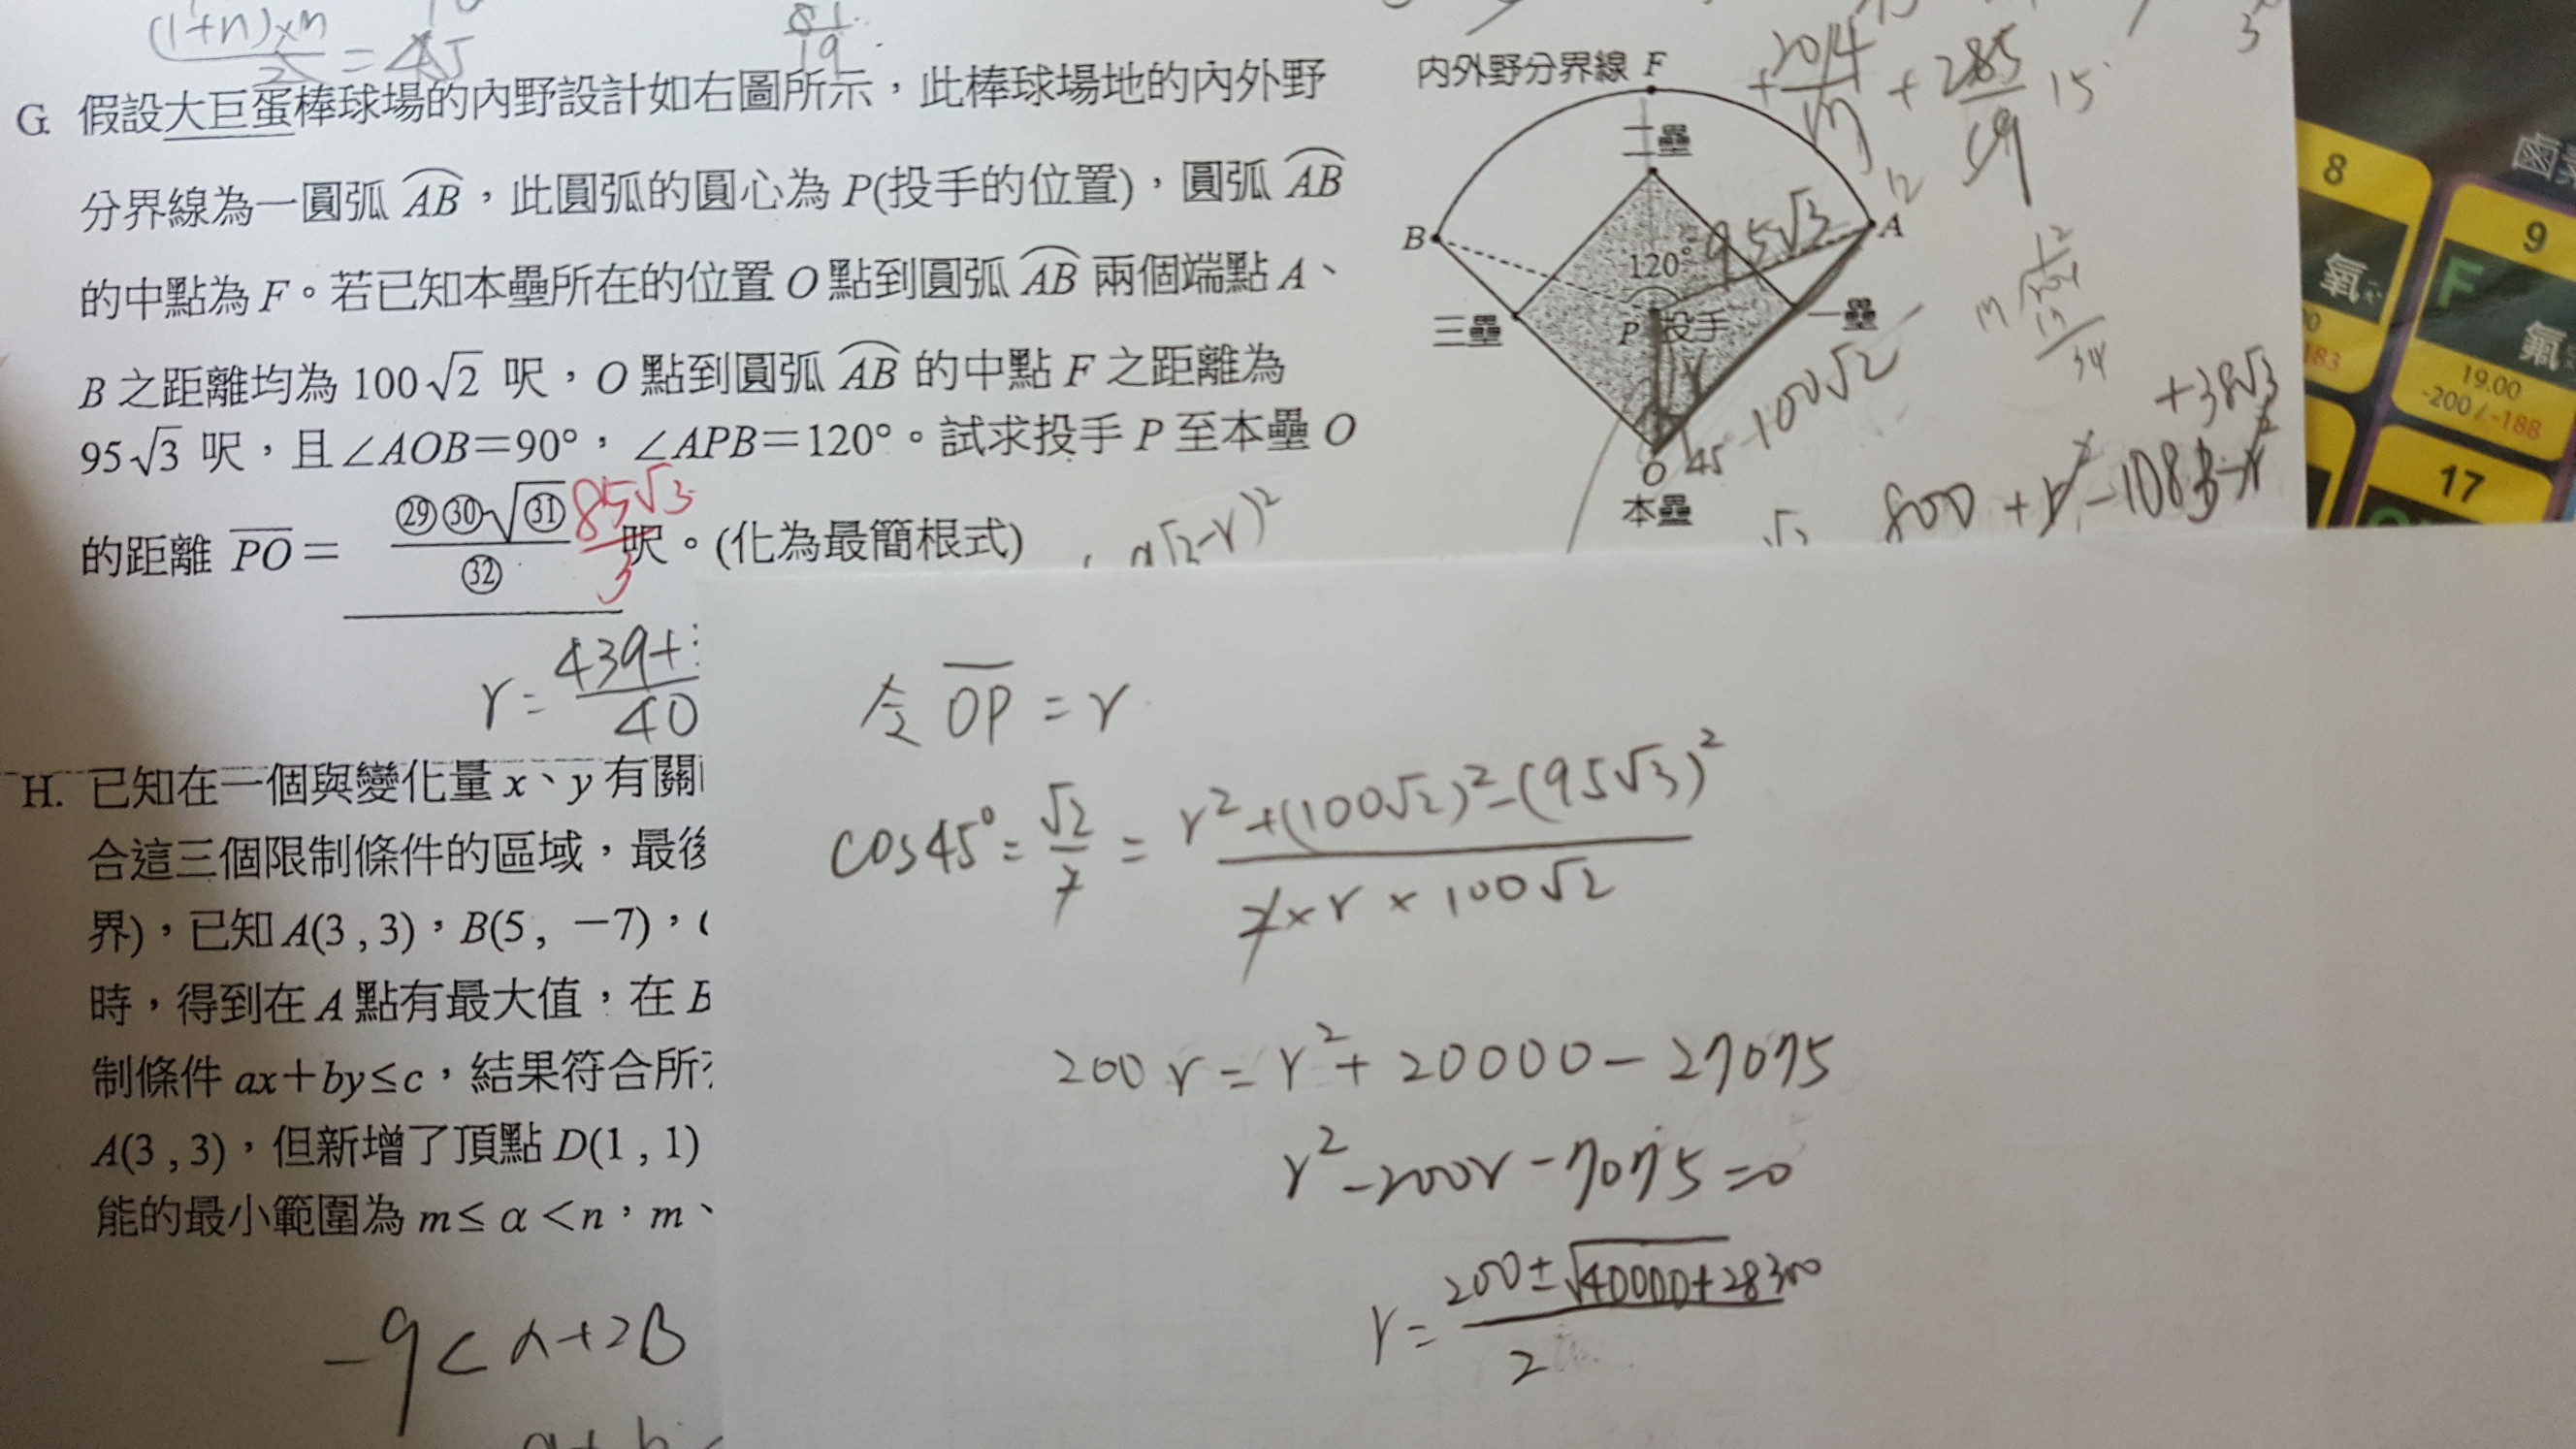 (1+n)×n
= 45
2
81
19
G. 假設大巨蛋棒球場的內野設計如右圖所示，此棒球場地的內外野
分界線為一圓弧 AB，此圓弧的圓心為 P(投手的位置)，圓弧 AB
的中點為 F。若已知本壘所在的位置 O 點到圓弧 AB 兩個端點 A、
B 之距離均為 100√2 呎，O 點到圓弧 AB 的中點 F 之距離為
95√3 呎，且∠AOB=90°，∠APB=120°。試求投手 P 至本壘 O
的距離 PO = ㉙㉚√㉛ / ㉜ 呎。(化為最簡根式)
85√3
3
內外野分界線 F
二壘
B
A
95√3
120°
三壘
P 投手
一壘
100√2
O 45
本壘
+ 285
19
15
12
+38√3
√2-r)²
8
9
鹵素
氧
F
氟
183
19.00
-200/-188
17
r = 439+
40
H. 已知在一個與變化量 x、y 有關
合這三個限制條件的區域，最後
界)，已知 A(3 , 3)，B(5 , −7)，
時，得到在 A 點有最大值，在 B
制條件 ax+by≤c，結果符合所
A(3 , 3)，但新增了頂點 D(1 , 1)
能的最小範圍為 m≤ α <n，m、
-9<α+2B
令 OP = r
cos45° = √2/2 = r²+(100√2)²-(95√3)² / 2×r×100√2
200r = r²+20000-27075
r²-200r-7075=0
r = 200±√40000+28300 / 2